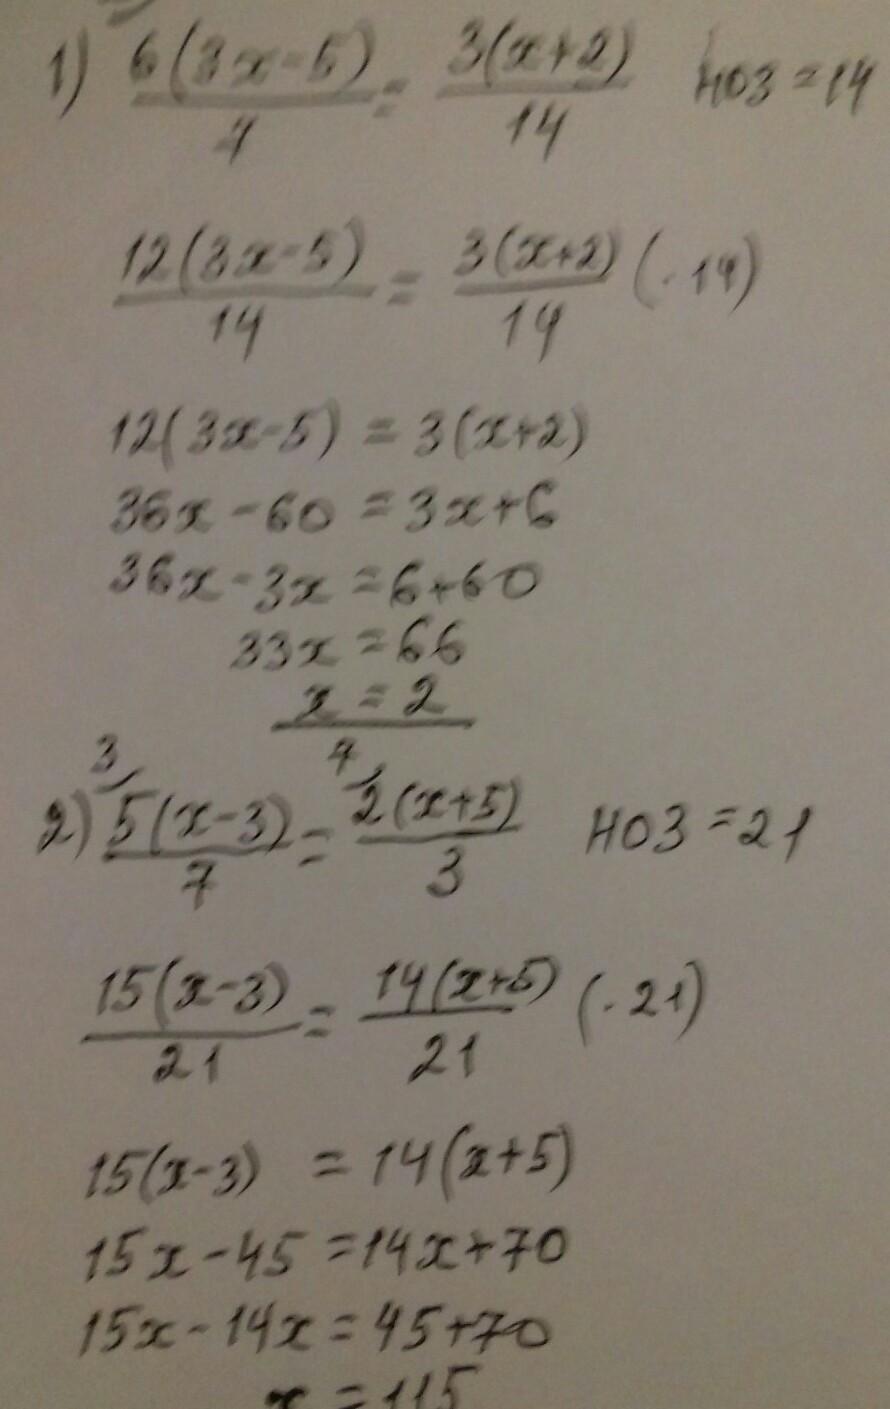 1) 6(3x-5)/7 = 3(x+2)/14 НОЗ = 14
12(3x-5)/14 = 3(x+2)/14 (· 14)
12(3x-5) = 3(x+2)
36x - 60 = 3x+6
36x - 3x = 6+60
33x = 66
x = 2
3 7
2) 5(x-3)/7 = 2(x+5)/3 НОЗ = 21
15(x-3)/21 = 14(x+5)/21 (· 21)
15(x-3) = 14(x+5)
15x - 45 = 14x+70
15x - 14x = 45+70
x = 115